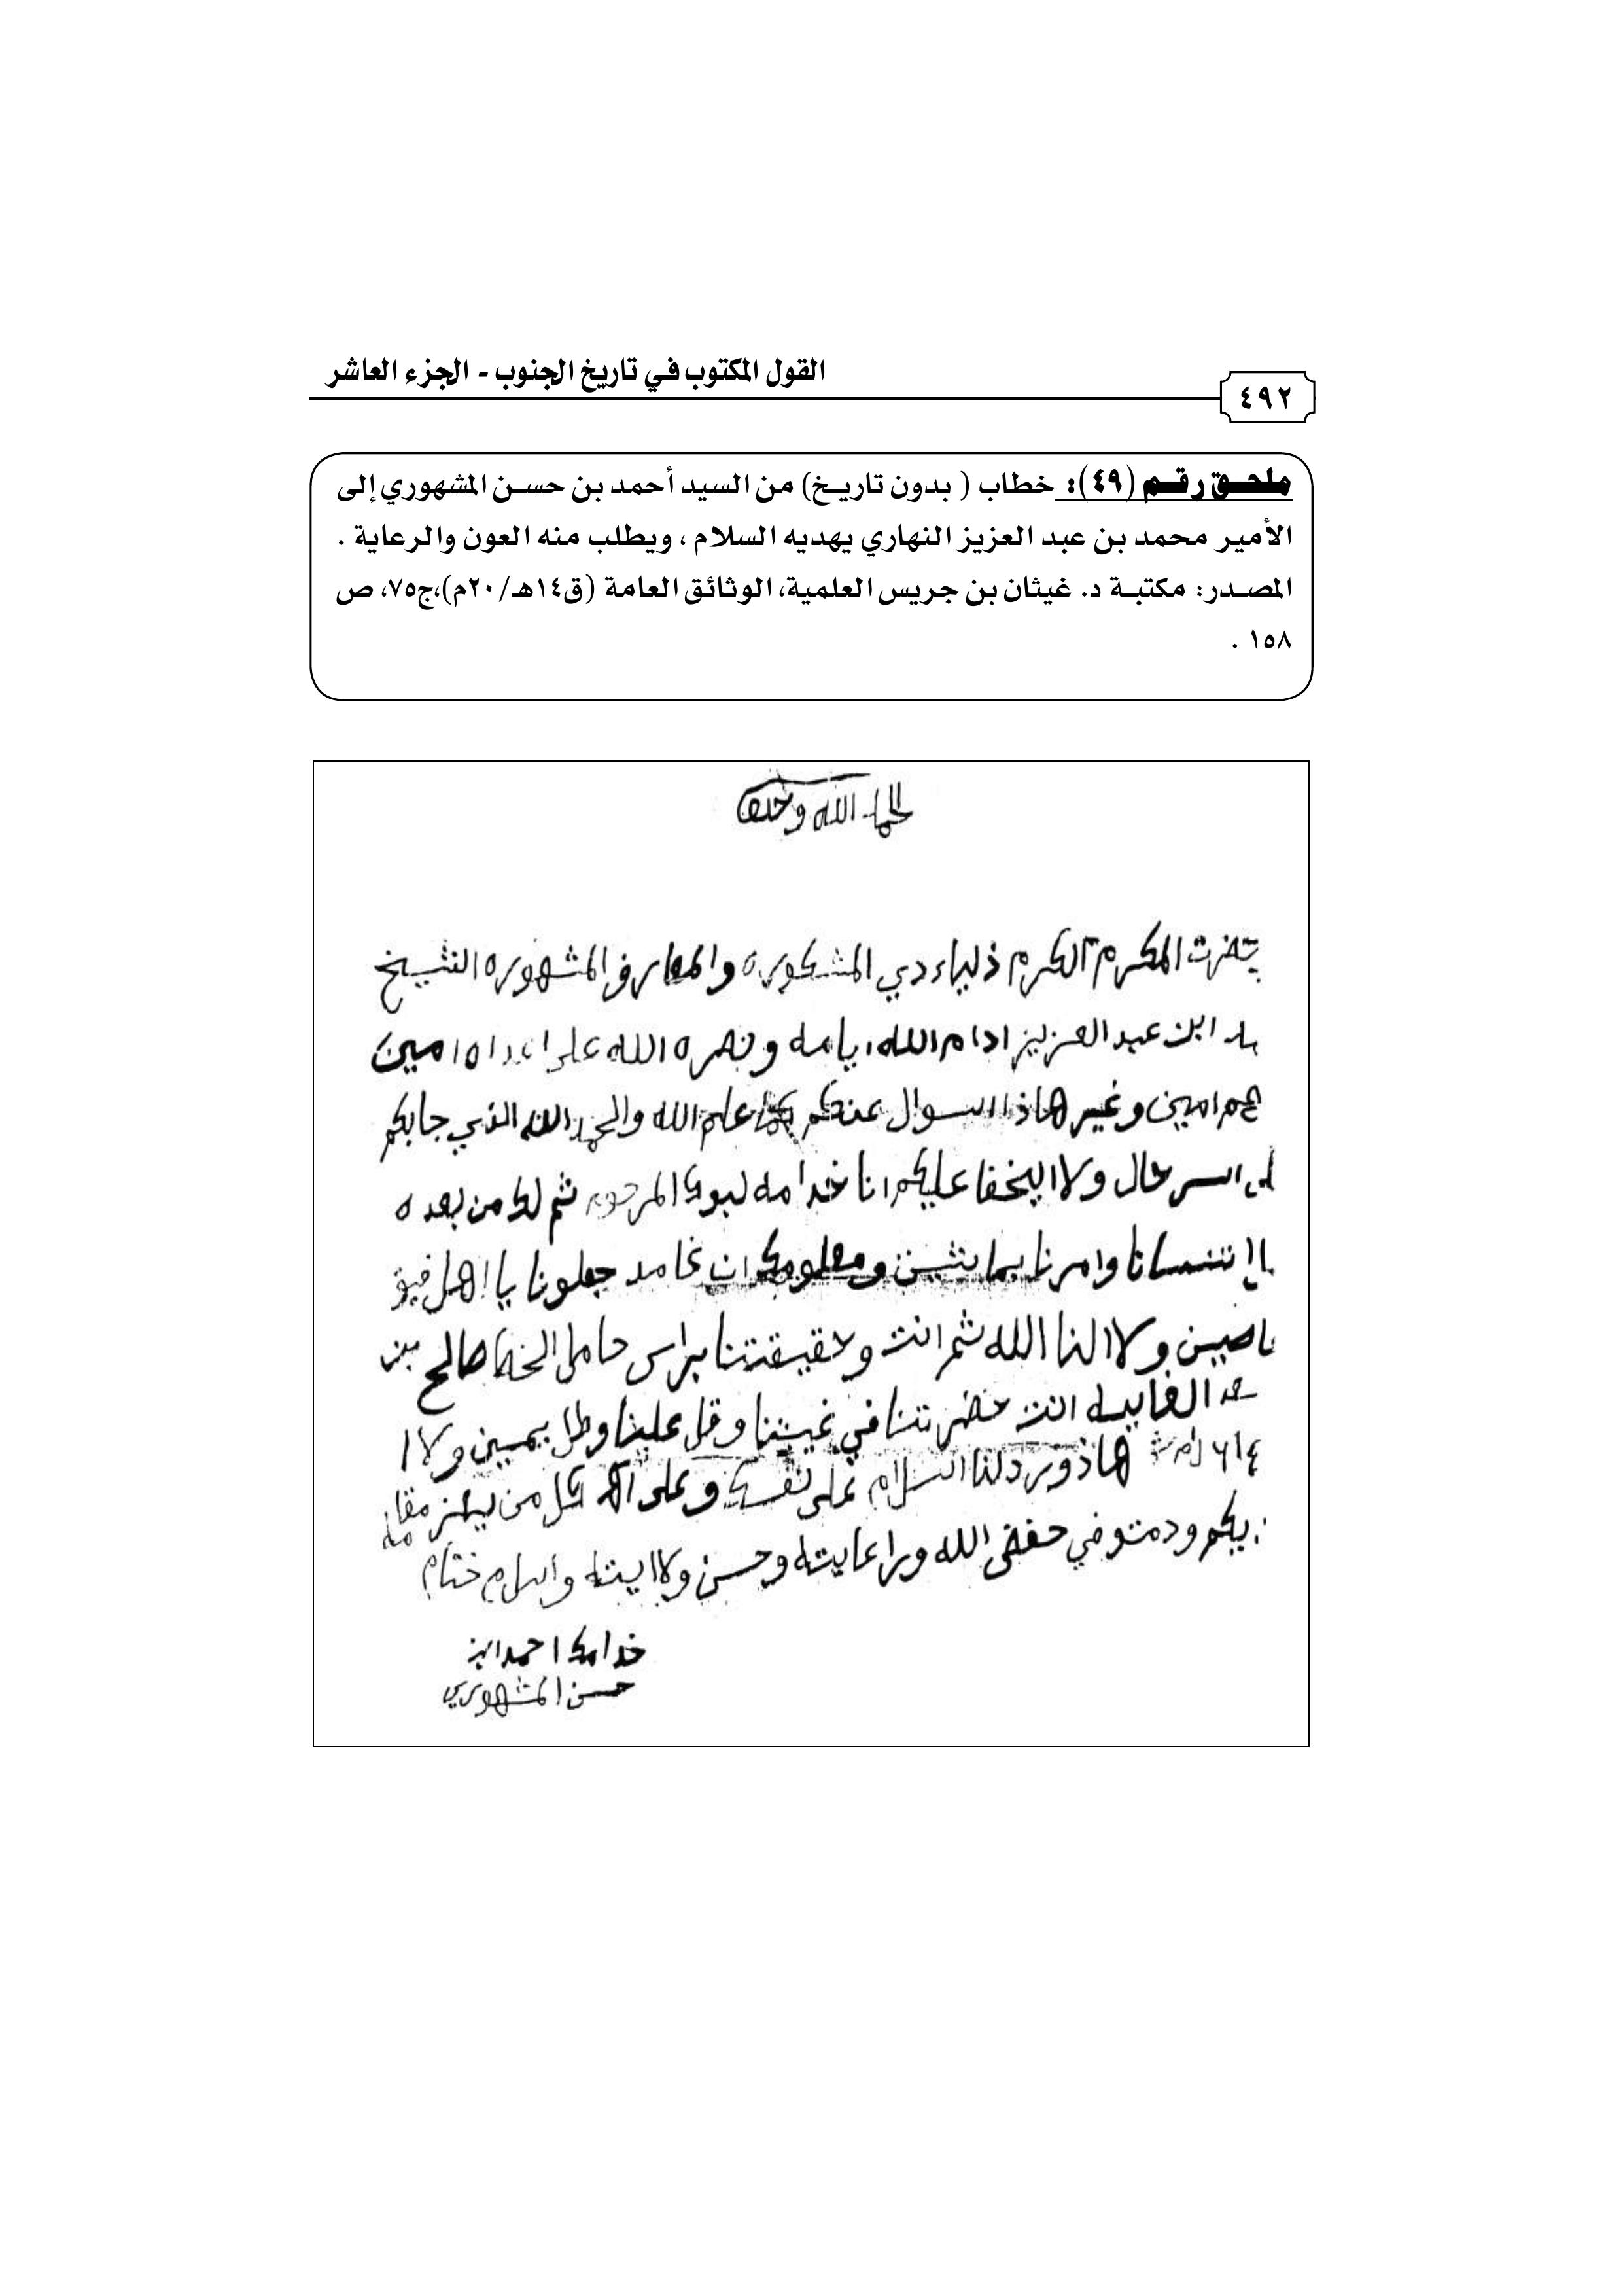 القول المكتوب في تاريخ الجنوب - الجزء العاشر
٤٩٢
ملحق رقم (٤٩): خطاب ( بدون تاريخ) من السيد أحمد بن حسن المشهوري إلى
الأمير محمد بن عبد العزيز النهاري يهديه السلام ، ويطلب منه العون والرعاية .
المصدر: مكتبة د. غيثان بن جريس العلمية، الوثائق العامة (ق١٤هـ/٢٠م)،ج٧٥، ص
١٥٨ .
الحمد الله وحده
المكرم الكرم المشكوره والمعارف المشهوره الشيخ
ابن عبد العزيز ادام الله ايامه ونصره الله على اعداه امين
امين وغير هاذا السوال عنكم علم الله والحمد الله الذي جابكم
اسر حال ولا ايخفا عليكم انا خدامه لبوك المرحوم ثم لك من بعده
تنسانا وامرنا بما ومعلومك ان غامد جعلونا يا اهل
ولا النا الله ثم انت وحقيقتنا براس حامل الخط صالح بن
انت حضرتنا في غيبتنا وقل علينا وطل يمين ولا
هاذ ورد لنا السلام على نفسك وعلى كل من مقا
مه
ودمتو في حفض الله وراعايته وحسن ولاايته واسلام ختام
خدامك احمد ابن
حسن المشهوري